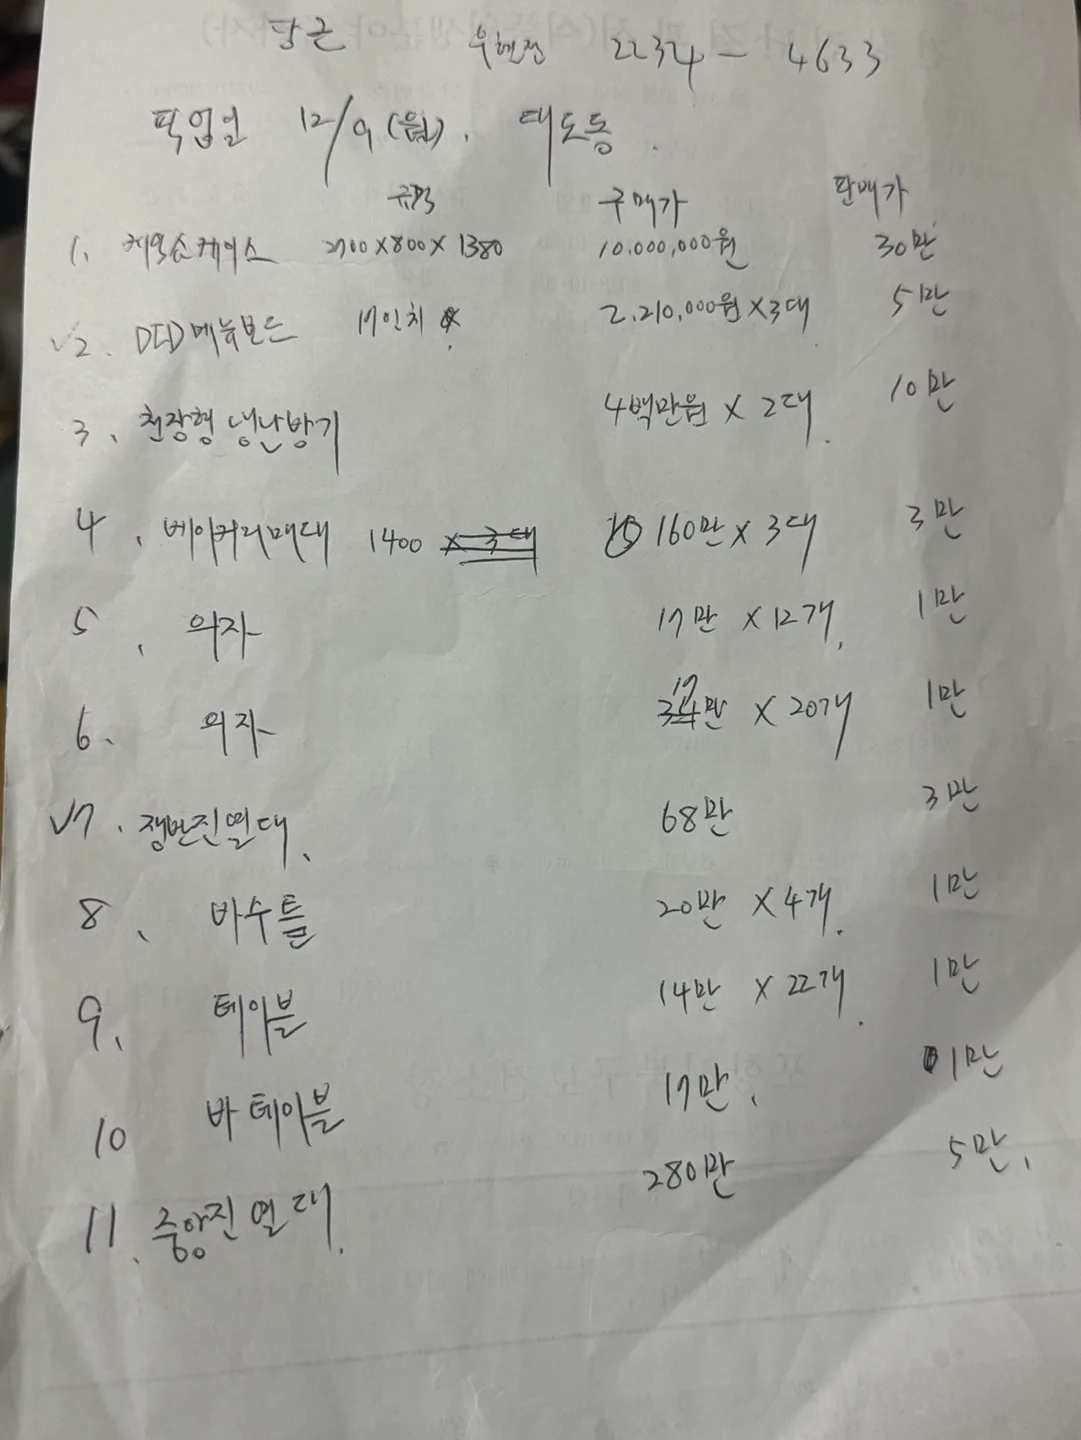 당근 우현점 2234 - 4633
픽업일 12/9 (월). 대도동.
규격 구매가 판매가
1. 케익쇼케이스 2700×800×1380 10.000,000원 30만
√2. DID메뉴보드 17인치 2.210,000원×3대 5만
3. 천장형 냉난방기 4백만원 × 2대. 10만
4. 베이커리매대 1400 × 3대 160만 × 3대 3만
5. 의자 17만 × 12개. 1만
6. 의자 17만 × 20개 1만
√7. 쟁반진열대. 68만 3만
8. 바수틀 20만 × 4개. 1만
9. 테이블 14만 × 22개. 1만
10 바 테이블 17만. 1만
11. 중앙진열대. 280만 5만.